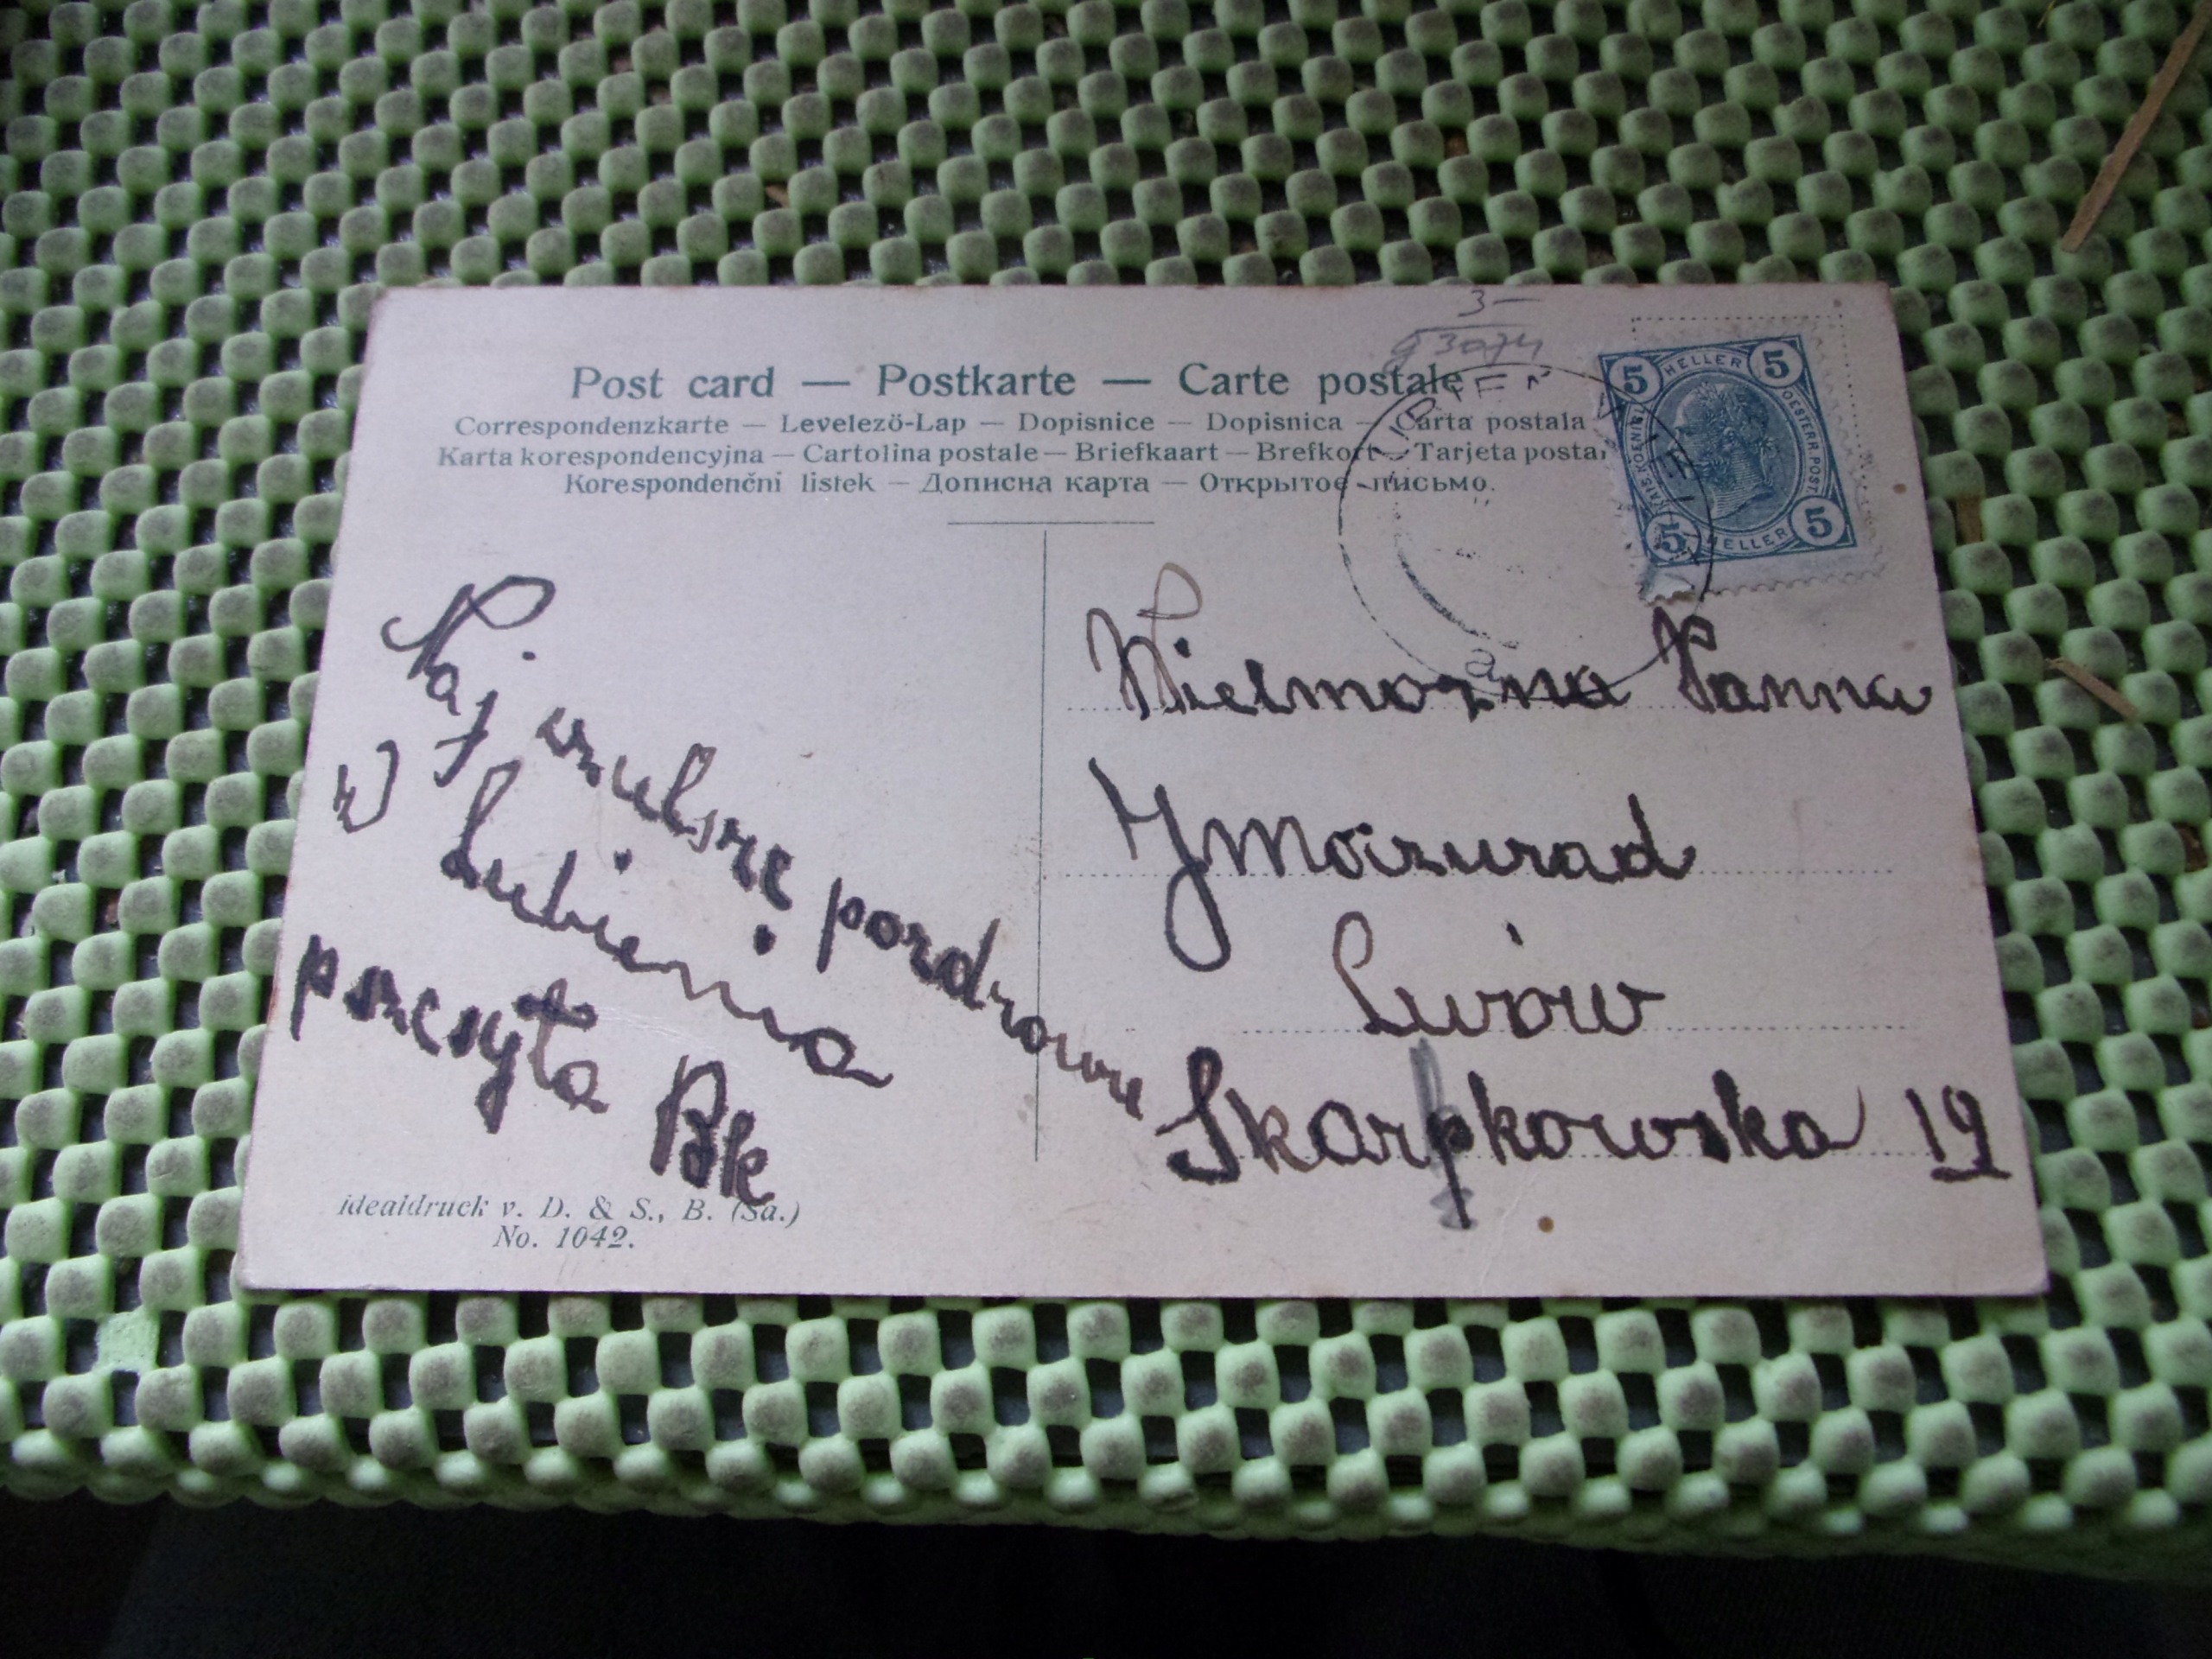 3—
93074
Post card — Postkarte — Carte postale
Correspondenzkarte — Levelező-Lap — Dopisnice — Dopisnica — Carta postala
Karta korespondencyjna — Cartolina postale — Briefkaart — Brefkort — Tarjeta postal
Korespondenčni listek — Дописна карта — Открытое письмо.
5 HELLER 5
KAIS. KOENIGL. OESTERR. POST
5 HELLER 5
Naj czulsze pozdrowie
z Lubienia
przesyła Bk
Wielmożna Panna
J Mazurad
Lwów
Skarpkowska 19
idealdruck v. D. & S., B. (Sa.)
No. 1042.